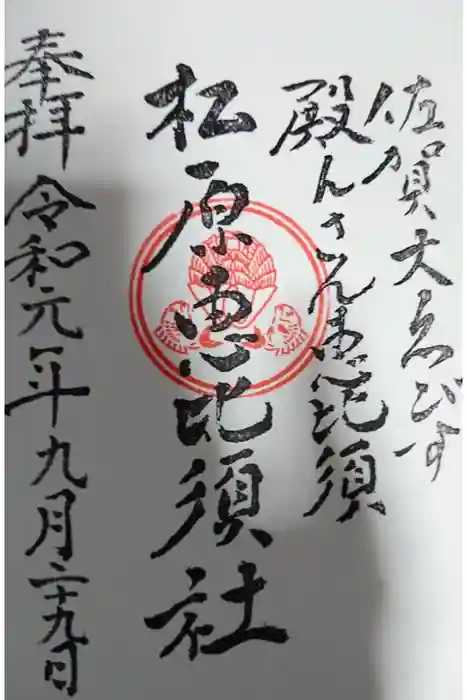 佐賀大ゑびす
殿んさん恵比須
松原恵比須社
奉拝 令和元年九月二十九日